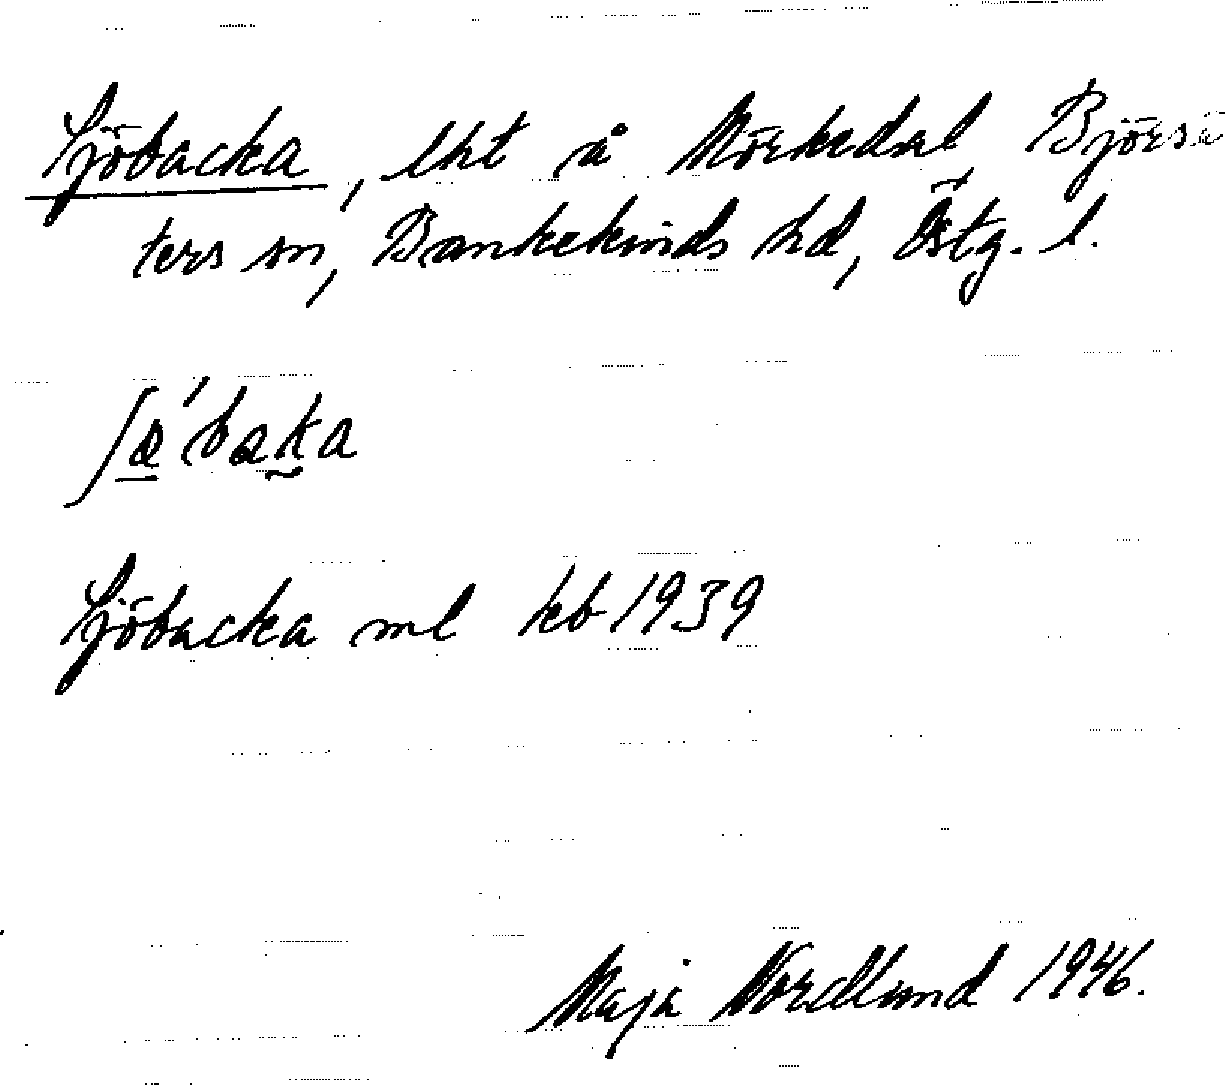 Sjöbacka, lht å Mörkedal, Björsä
ters sn, Bankekinds hd, Östg. l.
Sjöbacka ml kb 1939
Maja Nordlund 1946.